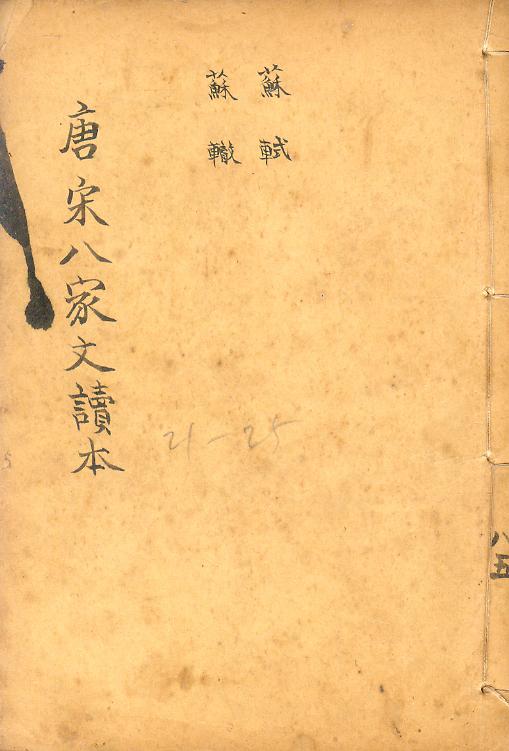 蘇軾
蘇轍
唐宋八家文讀本
21-25
八五